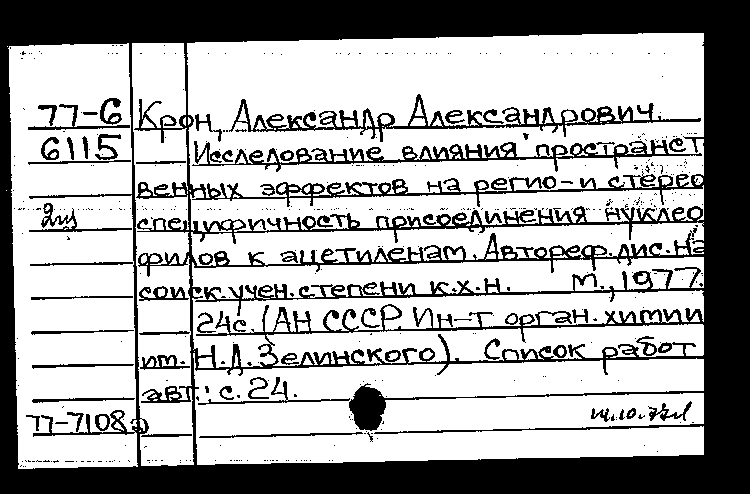 77-6 Крон, Александр Александрович.
6115 Исследование влияния пространст
венных эффектов на регио- и стерео
2из специфичность присоединения нуклео
филов к ацетиленам. Автореф. дис. на
соиск. учен. степени к.х.н. М., 1977.
24с. (АН СССР. Ин-т орган. химии
им. Н.Д. Зелинского). Список работ
авт.: с. 24.
77-7108а